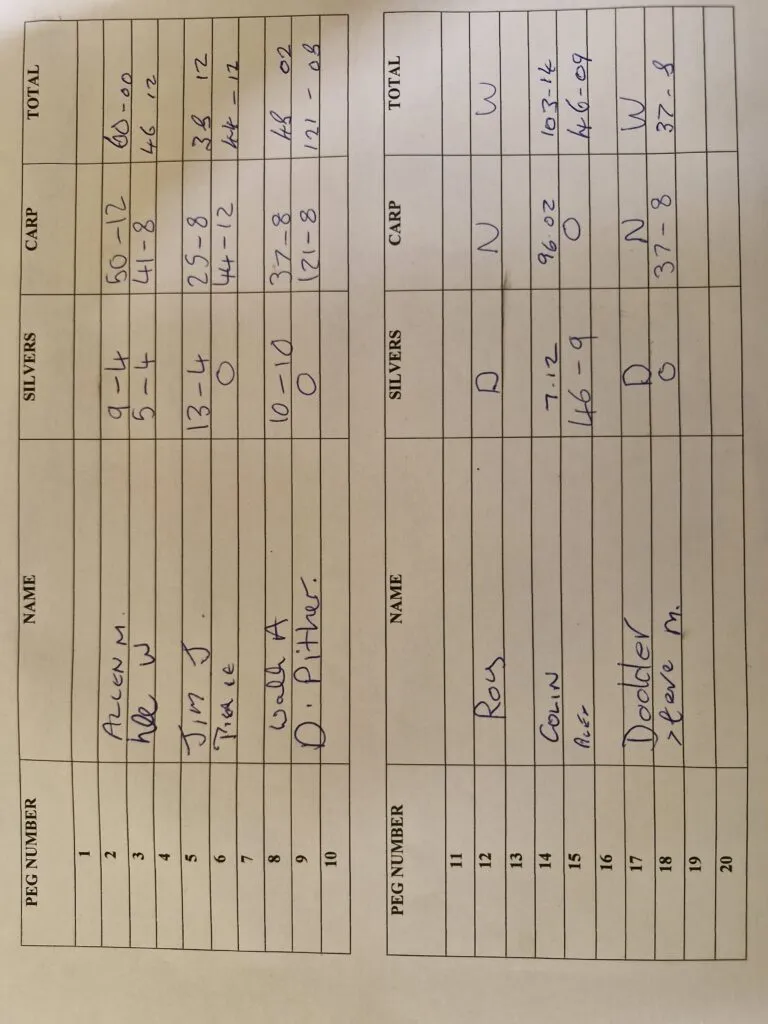 PEG NUMBER NAME SILVERS CARP TOTAL
1
2 ALLEN M. 9-4 50-12 60-00
3 W 5-4 41-8 46 12
4
5 JIM J. 13-4 25-8 38 12
6 0 44-12 44-12
7
8 Walt A 10-10 37-8 48 02
9 D. Pither. 0 121-8 121-08
10
PEG NUMBER NAME SILVERS CARP TOTAL
11
12 Roy D N W
13
14 COLIN 7.12 96.02 103-14
15 ALEX 46-9 0 46-09
16
17 Dodder D N W
18 Steve M. 0 37-8 37-8
19
20